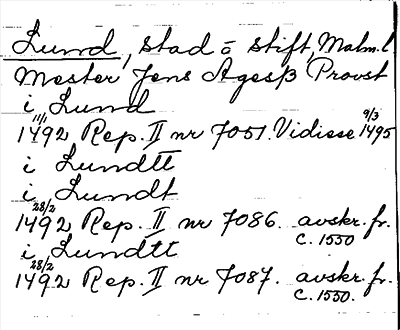 Lund, stad o stift, Malm.l.
Mester Jens Agesß Provst
i Lund
11/1 1492 Rep. II nr 7051. Vidisse 9/3 1495
i Lundtt
i Lundt
28/2 1492 Rep. II nr 7086. avskr. fr. c. 1550
i Lundtt
28/2 1492 Rep. II nr 7087. avskr. fr. c. 1550.